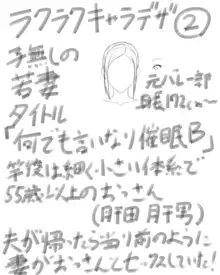 ラクラクキャラデザ②
子無しの
若妻
元バレー部
身長172くらい
タイトル
「何でも言いなり催眠B」
竿役は細く小さい体系で
55歳以上のおっさん
(肝田 肝男)
夫が帰ったら当り前のように
妻がおっさんとセックスしていた!